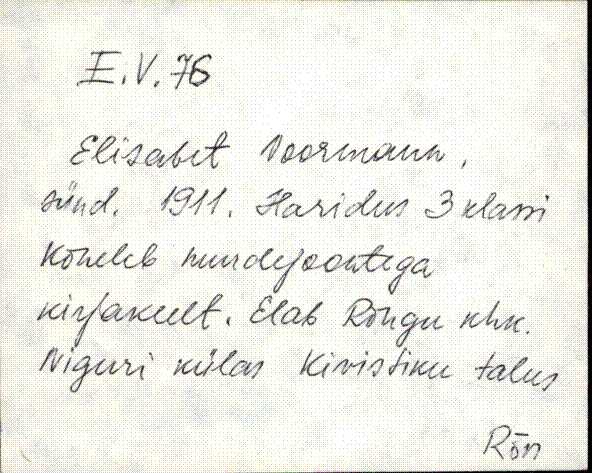 E.V.76
Elisabet Voormann,
sünd. 1911. Haridus 3 klassi
Kõneleb murdejoontega
kirjakeelt. Elab Rõngu khk.
Niguri külas Kivistiku talus
Rõn